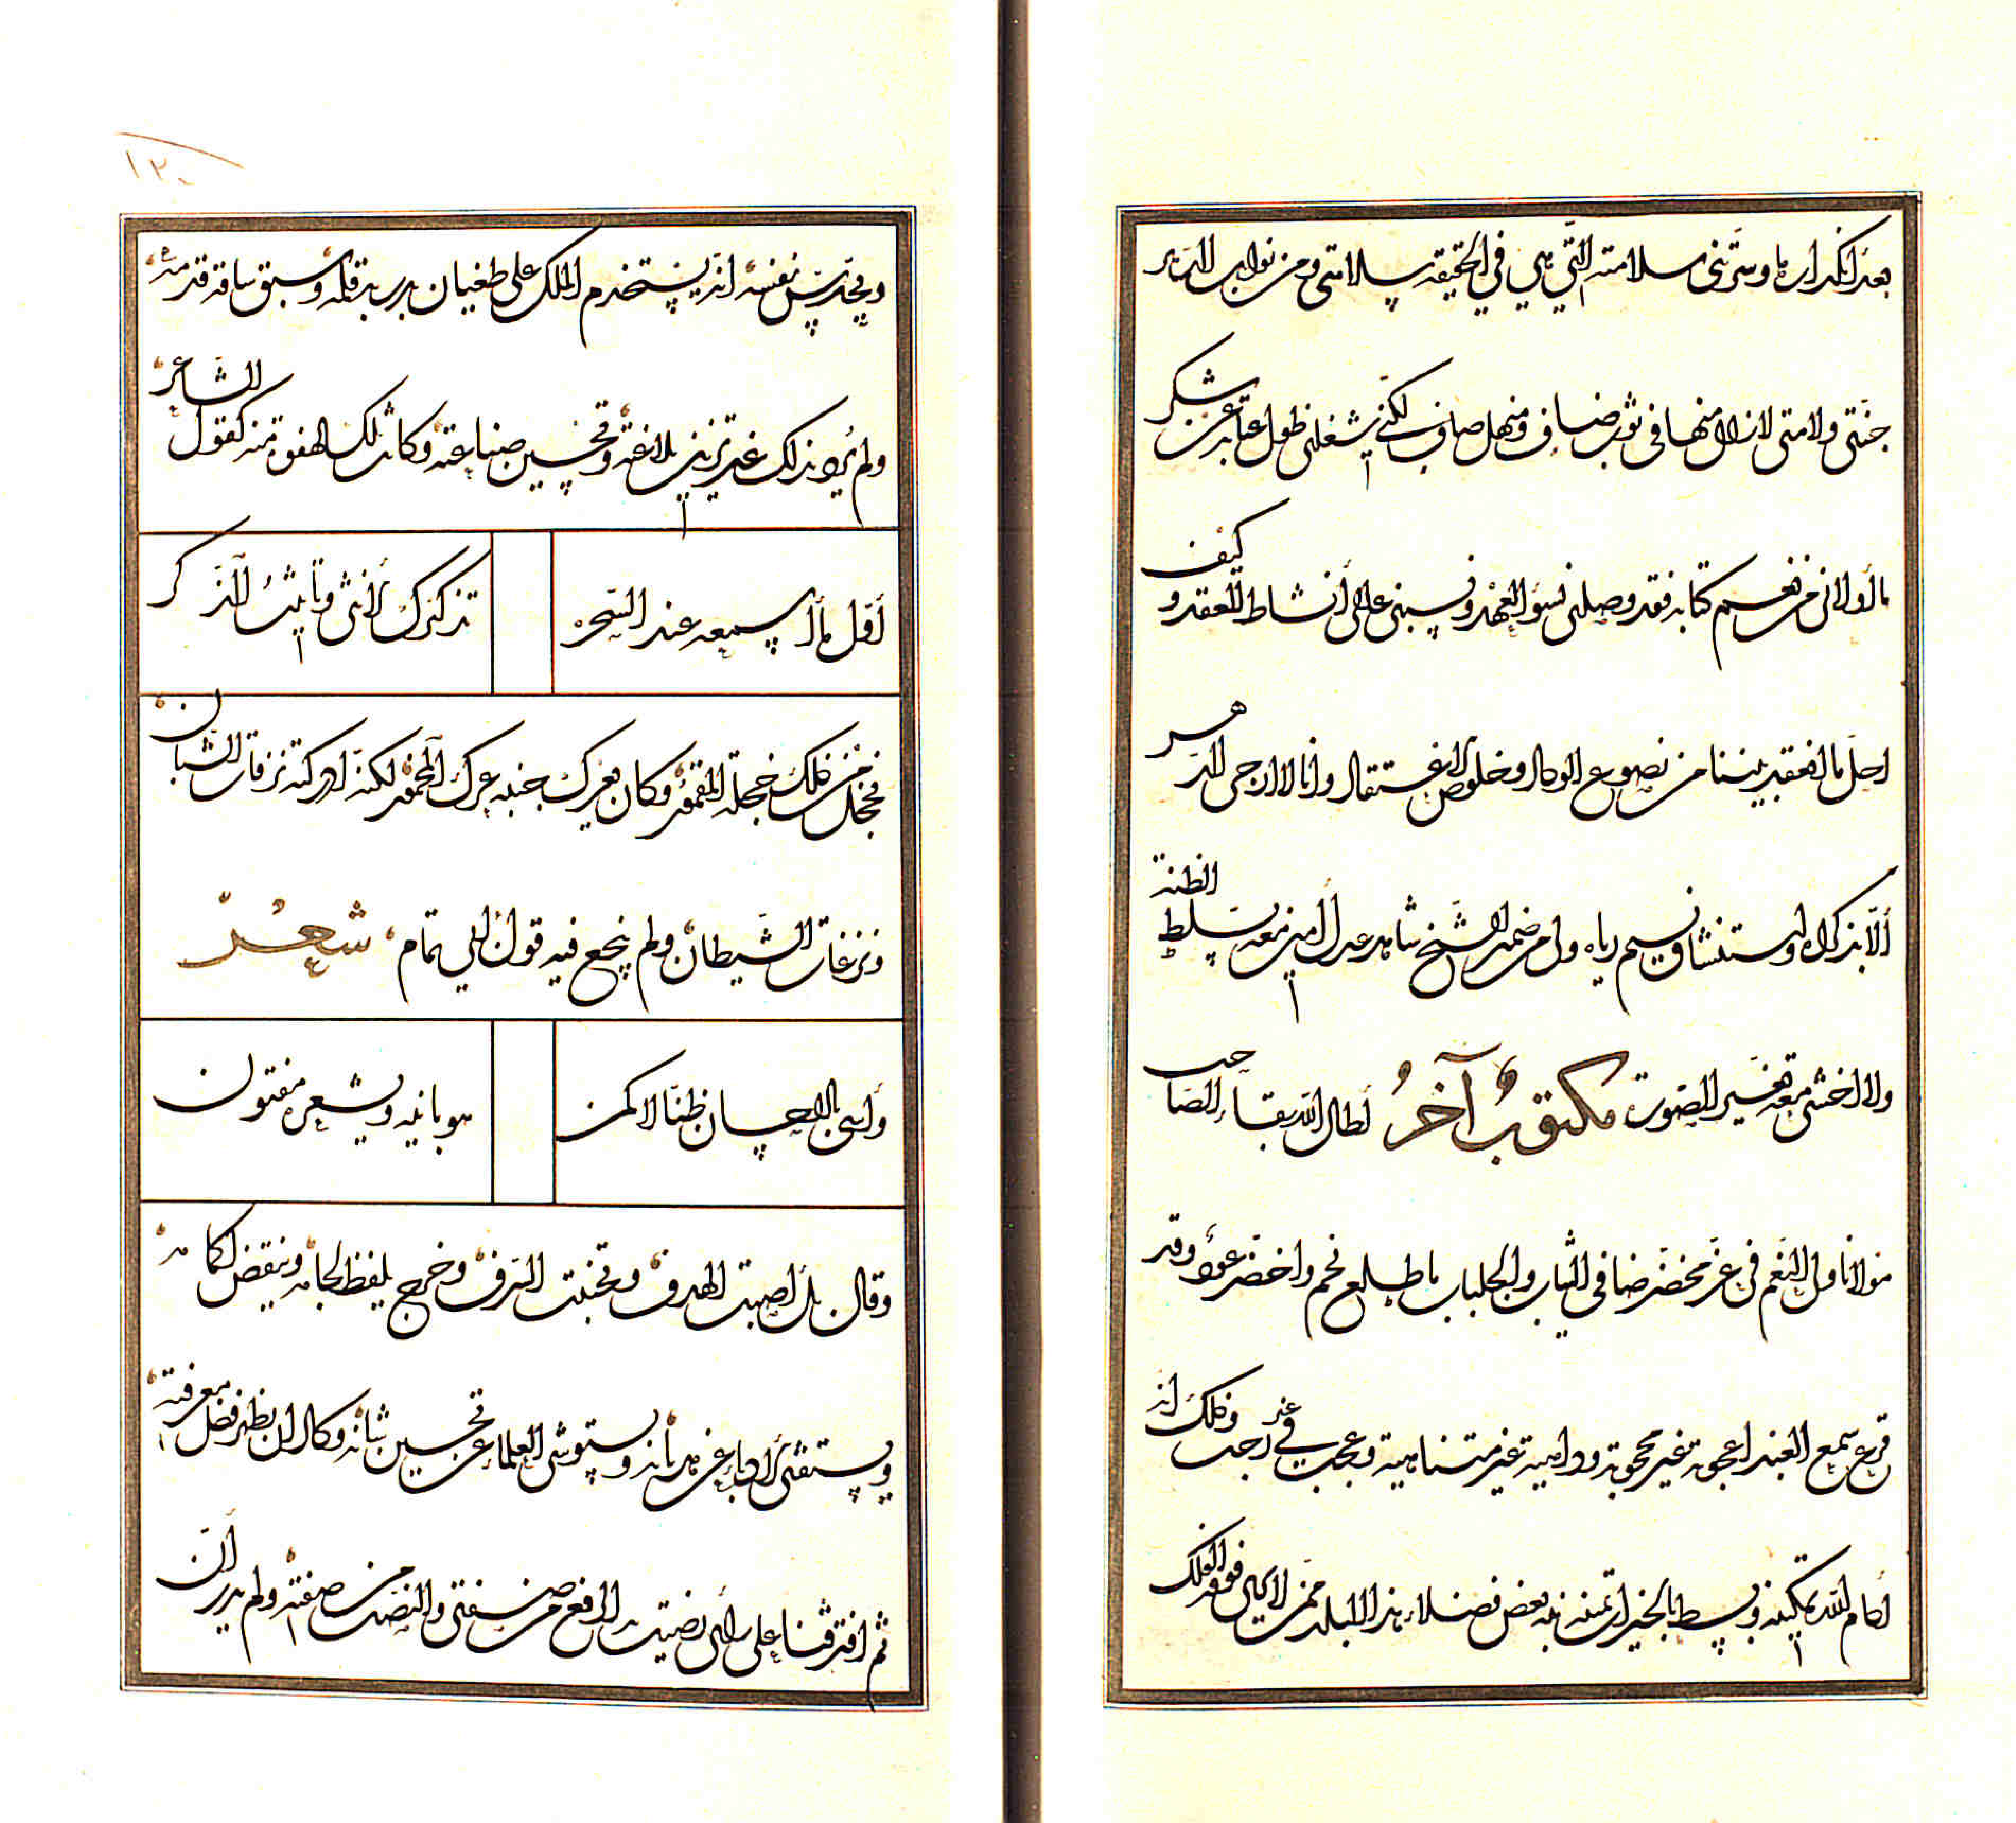 بعد انكدارها وسرتنى سلامته التى هى فى الحقيقه سلامتى ومن نوايب الدهر
جنتى ولامتى لازال منها فى ثوب ضاف ومنهل صاف لكنى شغلنى طول عتابه عن شكر
ما أولانى من كتابه فقد وصلنى بسؤ العهد ونسبنى الى أنشاط العقد وكيف
احل ما انعقد بيننا من نصوع الوداد وخلوص الاعتقاد وانا لا ارجى الدهر
ألا بذكراه واستنشاق نسيم رياه ولى من ضمير الشيخ شاهد عدل أمين معه تسلط الظنة
ولا اخشى معه تغيير الصوت مكتوب آخر أطال الله بقاء الصاحب
مولانا ولى النعم فى عز مخضر ضافى الثياب والجلباب ما طلع نجم واخضر عود وقد
قرع سمع العبد اعجوبة غير محجوبة وداهية غير متناهية وعجب فى غير رجب وذلك انه
أدام الله تمكينه وبسط بالخير يمينه نبه بعض فضلاء هذا البلد ممن لا يلى فوقه الفلك
ويحدس نفسه انه يستخدم الملك على طغيان قلمه وسبق ساقه قدمه
ولم يرد بذلك غير تزيين بلاغته وتحسين صناعته وكانت تلك الهفوة منه كقول الشاعر
أقل ما أسمعه عند السحر
تذكيرك الأنثى وتأنيث الذكر
فخجل من ذلك خجلة المقمور وكان يعرك جنبه عرك المخمور لكنه ادركته نزقات الشبان
ونزغات الشيطان ولم ينجع فيه قول ابى تمام شعر
وأسى بالاحسان ظنا لا كمن
هو بابنه وبشعره مفتون
وقال بل اصبت الهدف وتجنبت السرف وخرج يلفظ لجامه وينقض لكامه
ويستفتى الأدباء عن هذيانه ويستوشى العلماء عن تحسين شانه وكاد ان يظهر فضل معرفته
ثم افترقنا على رأى نضيته الرفع من صفتى والنصب من صفته ولم يدر أن